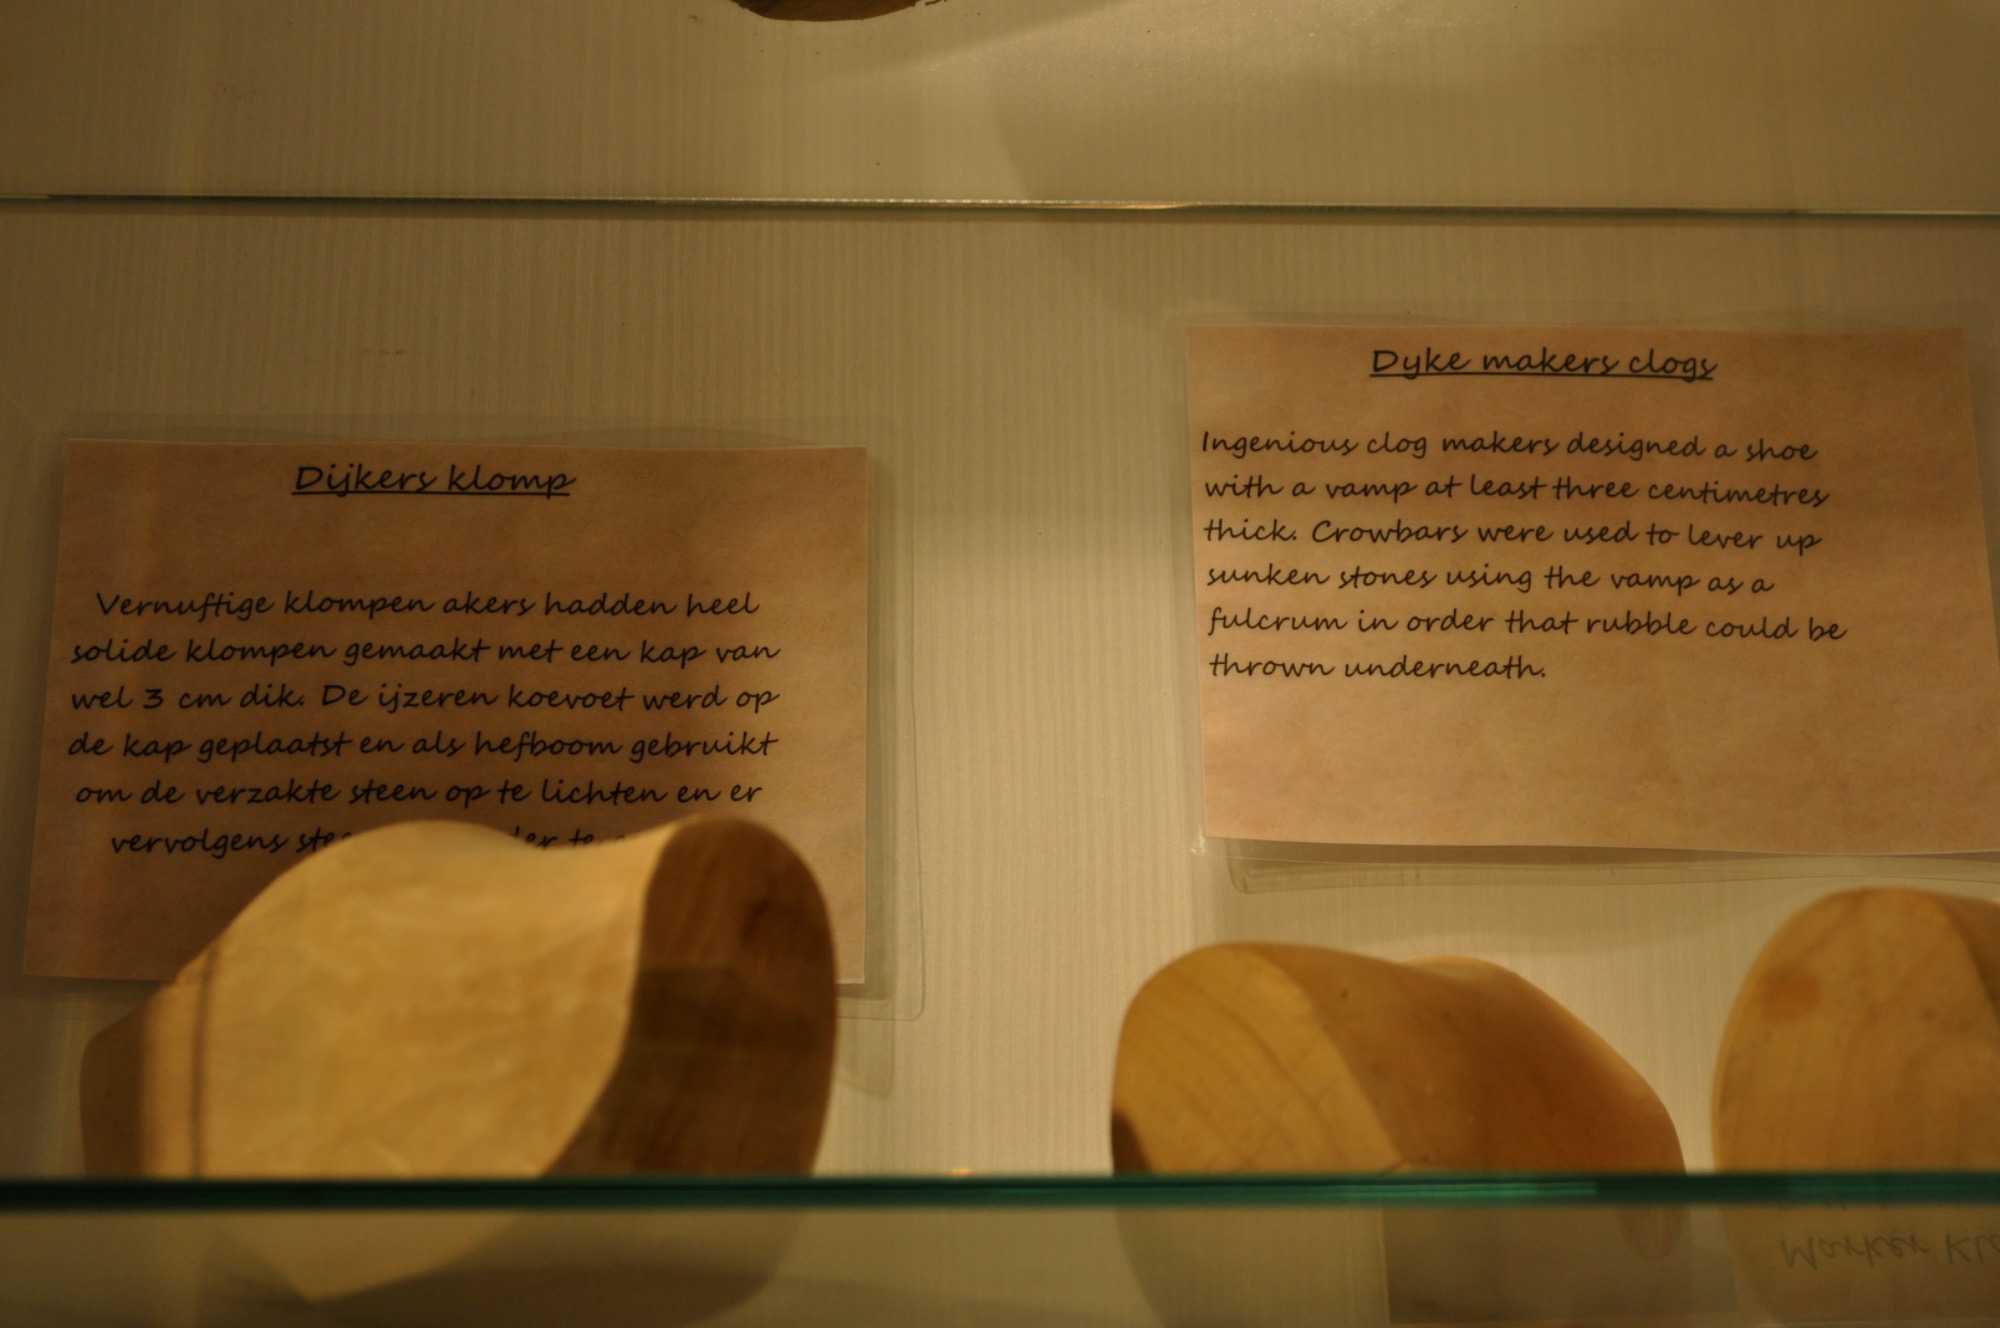 Dijkers klomp
Vernuftige klompen akers hadden heel
solide klompen gemaakt met een kap van
wel 3 cm dik. De ijzeren koevoet werd op
de kap geplaatst en als hefboom gebruikt
om de verzakte steen op te lichten en er
vervolgens te
Dyke makers clogs
Ingenious clog makers designed a shoe
with a vamp at least three centimetres
thick. Crowbars were used to lever up
sunken stones using the vamp as a
fulcrum in order that rubble could be
thrown underneath.
Marker